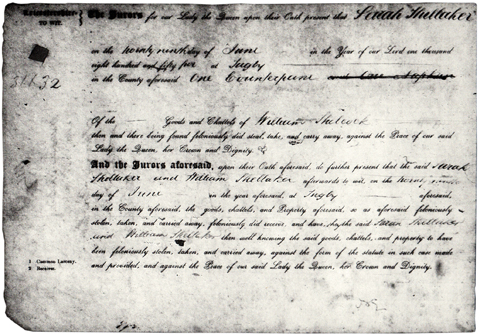 TO WIT. The Jurors for our Lady the Queen upon their Oath present that Sarah Shellaker
on the twenty ninth day of June in the Year of our Lord one thousand
eight hundred and fifty five at Ingby
in the County aforesaid One Counterpane
Of the Goods and Chattels of William
then and there being found feloniously did steal, take, and carry away, against the Peace of our said
Lady the Queen, her Crown and Dignity.
And the Jurors aforesaid, upon their Oath aforesaid, do further present that the said Sarah
Shellaker and William Shellaker afterwards to wit, on the
day of June in the year aforesaid, at Ingby aforesaid,
in the County aforesaid, the goods, chattels, and Property aforesaid, so as aforesaid feloniously
stolen, taken, and carried away, feloniously did receive and have, they the said Sarah Shellaker
and William Shellaker then well knowing the said goods, chattels, and property to have
been feloniously stolen, taken, and carried away, against the form of the statute in such case made
and provided, and against the Peace of our said Lady the Queen, her Crown and Dignity.
1 Common Larceny.
2 Receivers.